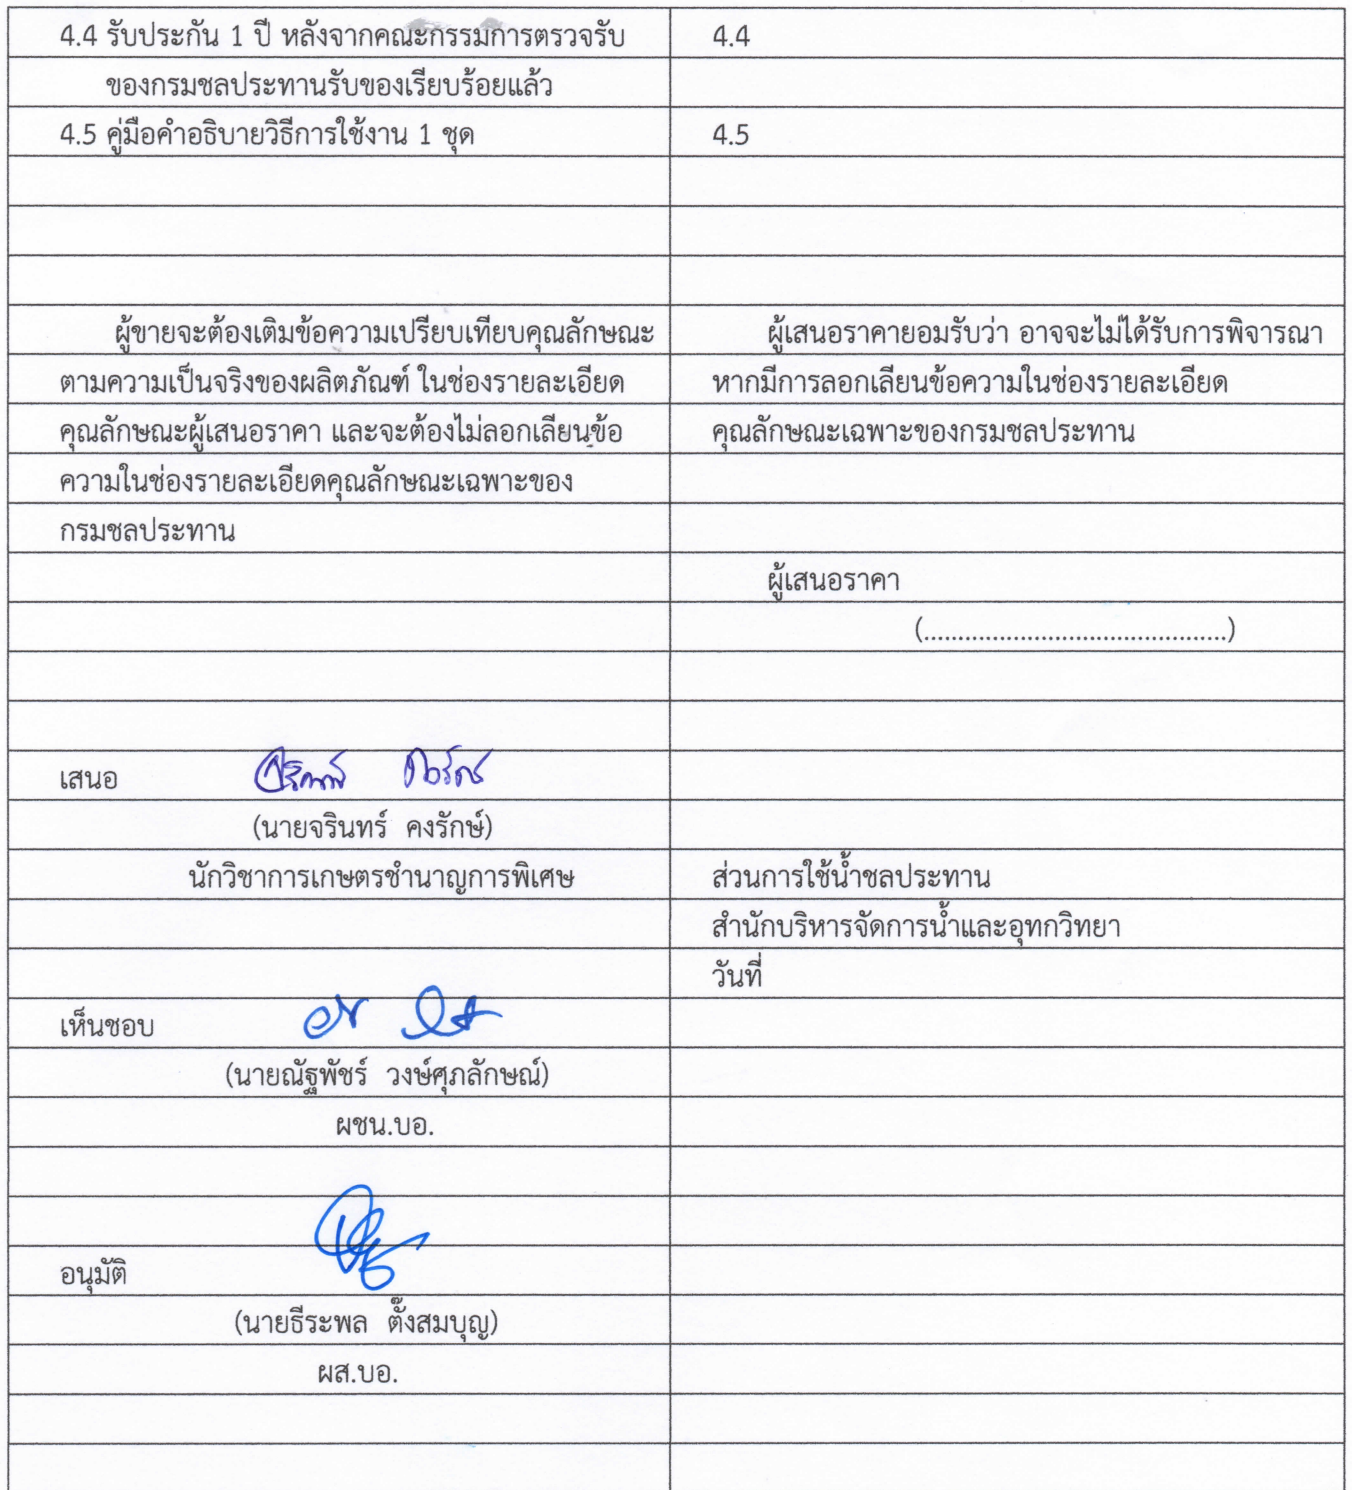 4.4 รับประกัน 1 ปี หลังจากคณะกรรมการตรวจรับ 4.4
ของกรมชลประทานรับของเรียบร้อยแล้ว
4.5 คู่มือคำอธิบายวิธีการใช้งาน 1 ชุด 4.5
ผู้ขายจะต้องเติมข้อความเปรียบเทียบคุณลักษณะ ผู้เสนอราคายอมรับว่า อาจจะไม่ได้รับการพิจารณา
ตามความเป็นจริงของผลิตภัณฑ์ ในช่องรายละเอียด หากมีการลอกเลียนข้อความในช่องรายละเอียด
คุณลักษณะผู้เสนอราคา และจะต้องไม่ลอกเลียนข้อ คุณลักษณะเฉพาะของกรมชลประทาน
ความในช่องรายละเอียดคุณลักษณะเฉพาะของ
กรมชลประทาน
ผู้เสนอราคา
(............................................)
เสนอ
(นายจรินทร์ คงรักษ์)
นักวิชาการเกษตรชำนาญการพิเศษ ส่วนการใช้น้ำชลประทาน
สำนักบริหารจัดการน้ำและอุทกวิทยา
วันที่
เห็นชอบ
(นายณัฐพัชร์ วงษ์ศุภลักษณ์)
ผชน.บอ.
อนุมัติ
(นายธีระพล ตั้งสมบุญ)
ผส.บอ.